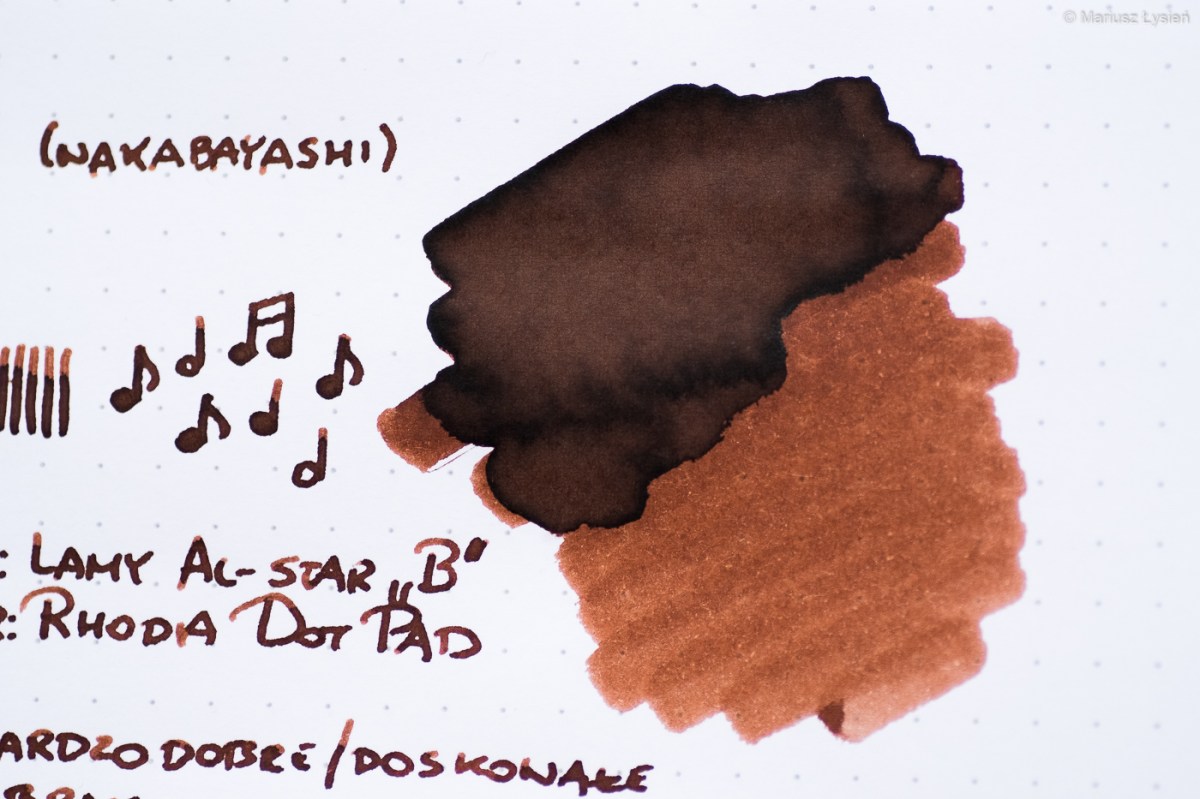 © Mariusz Łysień
(NAKABAYASHI)
: LAMY AL-STAR „B”
: RHODA DOT PAD
ARDZO DOBRE/DOSKONAŁE